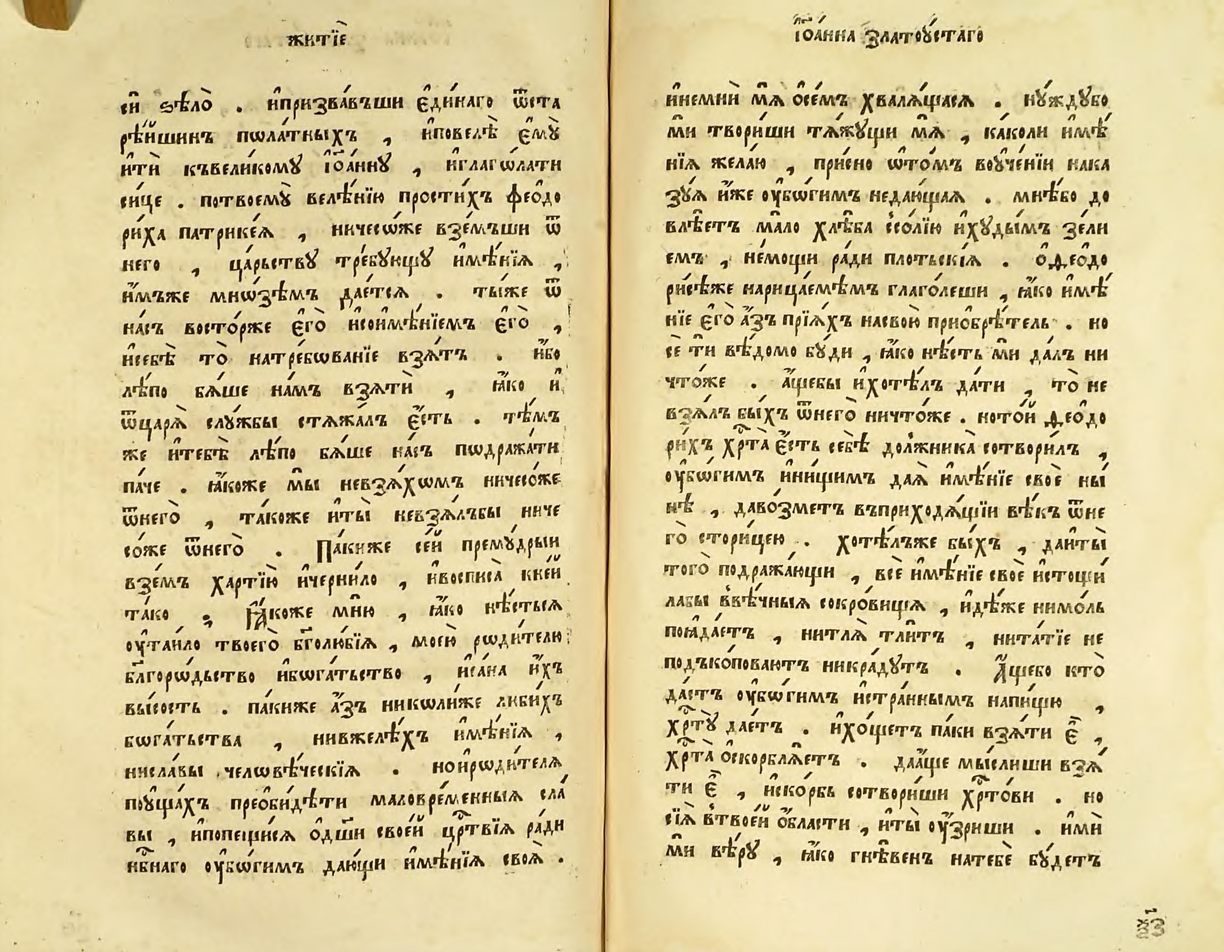 житїѐ
си̑ ѕѣло̀ . и҆призва́въши є҆ди́наго ѿста
рѣ́йшинъ пѡла́тныхъ , и҆повелѣ̀ є҆мꙋ̀
и҆тѝ къвели́комꙋ і҆ѡа́ннꙋ , и҆глаго́лати
си́це . потвоемꙋ̀ велѣ́нїю прости́хъ ѳео́до
ри́ха патрике́ѧ , ничесѡ́же взе́мъши ѿ
него , ца́рьствꙋ тре́бꙋющꙋ и҆мѣ́нїѧ ,
и҆́мъже мнѡ́зѣмъ дае́тсѧ . ты́же ѿ
на́съ восто́рже є҆го̀ и҆соимѣ́нїемъ є҆го̀ ,
и҆себѣ̀ то̀ натре́бѡванїе взѧ́тъ . и҆́бо
лѣ́по бѧ́ше на́мъ взѧ́ти , ꙗ҆́ко и҆
ѿцарѧ̀ слꙋ́жбы стѧжа́лъ є҆́сть . тѣ́мъ
же и҆тебѣ̀ лѣ́по бѧ́ше на́съ пѡдража́ти
па́че . ꙗ҆́коже мы̀ невзѧ́хѡмъ ничесо́же
ѿнего̀ , та́коже и҆ты̀ невзѧ́лъбы ниче
со́же ѿнего̀ . Па́киже се́й премꙋ́дрыи
взе́мъ ха́ртїю и҆черни́ло , и҆восписа̀ кне́й
та́ко . Ꙗ҆́коже мню̀ , ꙗ҆́ко нѣ́стьсѧ
ᲂу҆таи́ло твоего̀ бг҃олю́бїѧ , мое́ю рѡди́телю
бл҃горѡ́дьство и҆бѡга́тьство , и҆са́на и҆́хъ
высость . па́киже а҆́зъ николи́же люби́хъ
бѡга́тьства , нивжелѣ́хъ и҆мѣ́нїѧ ,
нисла́вы человѣ́ческїѧ . нои҆рѡди́телѧ
поꙋща́хъ преоби́дѣти маловре́менныѧ сла́
вы , и҆попещи́сѧ ѻ҆дш҃и свое́й црт҃вїѧ ра́ди
нбн҃аго ᲂу҆бѡ́гимъ даю́щи и҆мѣ́нїѧ своѧ̀ .
і҆ѡа́нна златоꙋ́стаго
и҆неми́й мѧ̀ ѻ҆се́мъ хвалѧ́щасѧ . нꙋ́ждꙋбо
мѝ твори́ши тѧ́жꙋщи мѧ̀ , ка́коли и҆мѣ́
нїѧ жела́ю , при́сно ѡ҆то́мъ воꙋче́нїи нака
зꙋ́ѧ и҆́же ᲂу҆бѡ́гимъ недаю́щаѧ . мнѣ́бо до
влѣ́етъ ма́ло хлѣ́ба ссо́лїю и҆хꙋды́мъ зе́лїи
емъ , не́мощи ра́ди пло́тьскїѧ . ѻ҆Ѳео́до
ри́сѣже нарица́емѣмъ глаго́леши , ꙗ҆́ко и҆мѣ́
нїе є҆го̀ а҆́зъ прїѧ́хъ насвою̀ приобрѣ́тель . но
се́ ти вѣ́домо бꙋ́ди , ꙗ҆́ко нѣ́сть мѝ да́лъ ни
что́же . а҆́щебы и҆хотѣ́лъ да́ти , то̀ не
взѧ́лъ бы́хъ ѿнего̀ ничто́же . нотой Ѳео́до
ри́хъ хрт҃а̀ є҆́сть себѣ̀ до́лжника сотвори́лъ ,
ᲂу҆бѡ́гимъ и҆ни́щимъ даѧ̀ и҆мѣ́нїе своѐ ны́
нѣ , даво́зметъ въприходѧ́щїи вѣ́къ ѿне
го̀ стори́цею . хотѣ́лъже бы́хъ , даи҆ты̀
того̀ подража́ющи , всѐ и҆мѣ́нїе своѐ и҆стощи́
лабы вве́чныѧ сокро́вища , и҆дѣ́же нимо́ль
поѧда́етъ , нитлѧ̀ тли́тъ , нита́тїе не
подъкопова́ютъ никра́дꙋтъ . А҆́щебо кто̀
да́стъ ᲂу҆бѡ́гимъ и҆стра́ннымъ напи́щю ,
хрт҃ꙋ̀ дае́тъ . и҆хо́щетъ па́ки взѧ́ти є҆̀ ,
хрт҃а̀ ѻ҆скорблѧ́етъ . даа́ще мы́слиши взѧ́
ти є҆̀ , и҆ско́рбь сотвори́ши хрт҃о́ви . но
сїѧ̀ втвое́й ѻ҆́бласти , и҆ты̀ ᲂу҆́зриши . и҆мѝ
мѝ вѣ́рꙋ , ꙗ҆́ко гнѣ́венъ натебѐ бꙋ́детъ